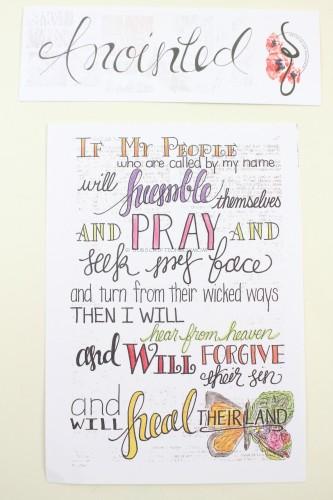 Anointed
IF MY PEOPLE
who are called by my name
will humble themselves
AND PRAY AND
seek my face
and turn from their wicked ways
THEN I WILL
hear from heaven
and WILL FORGIVE
their sin
and
WILL heal THEIR LAND